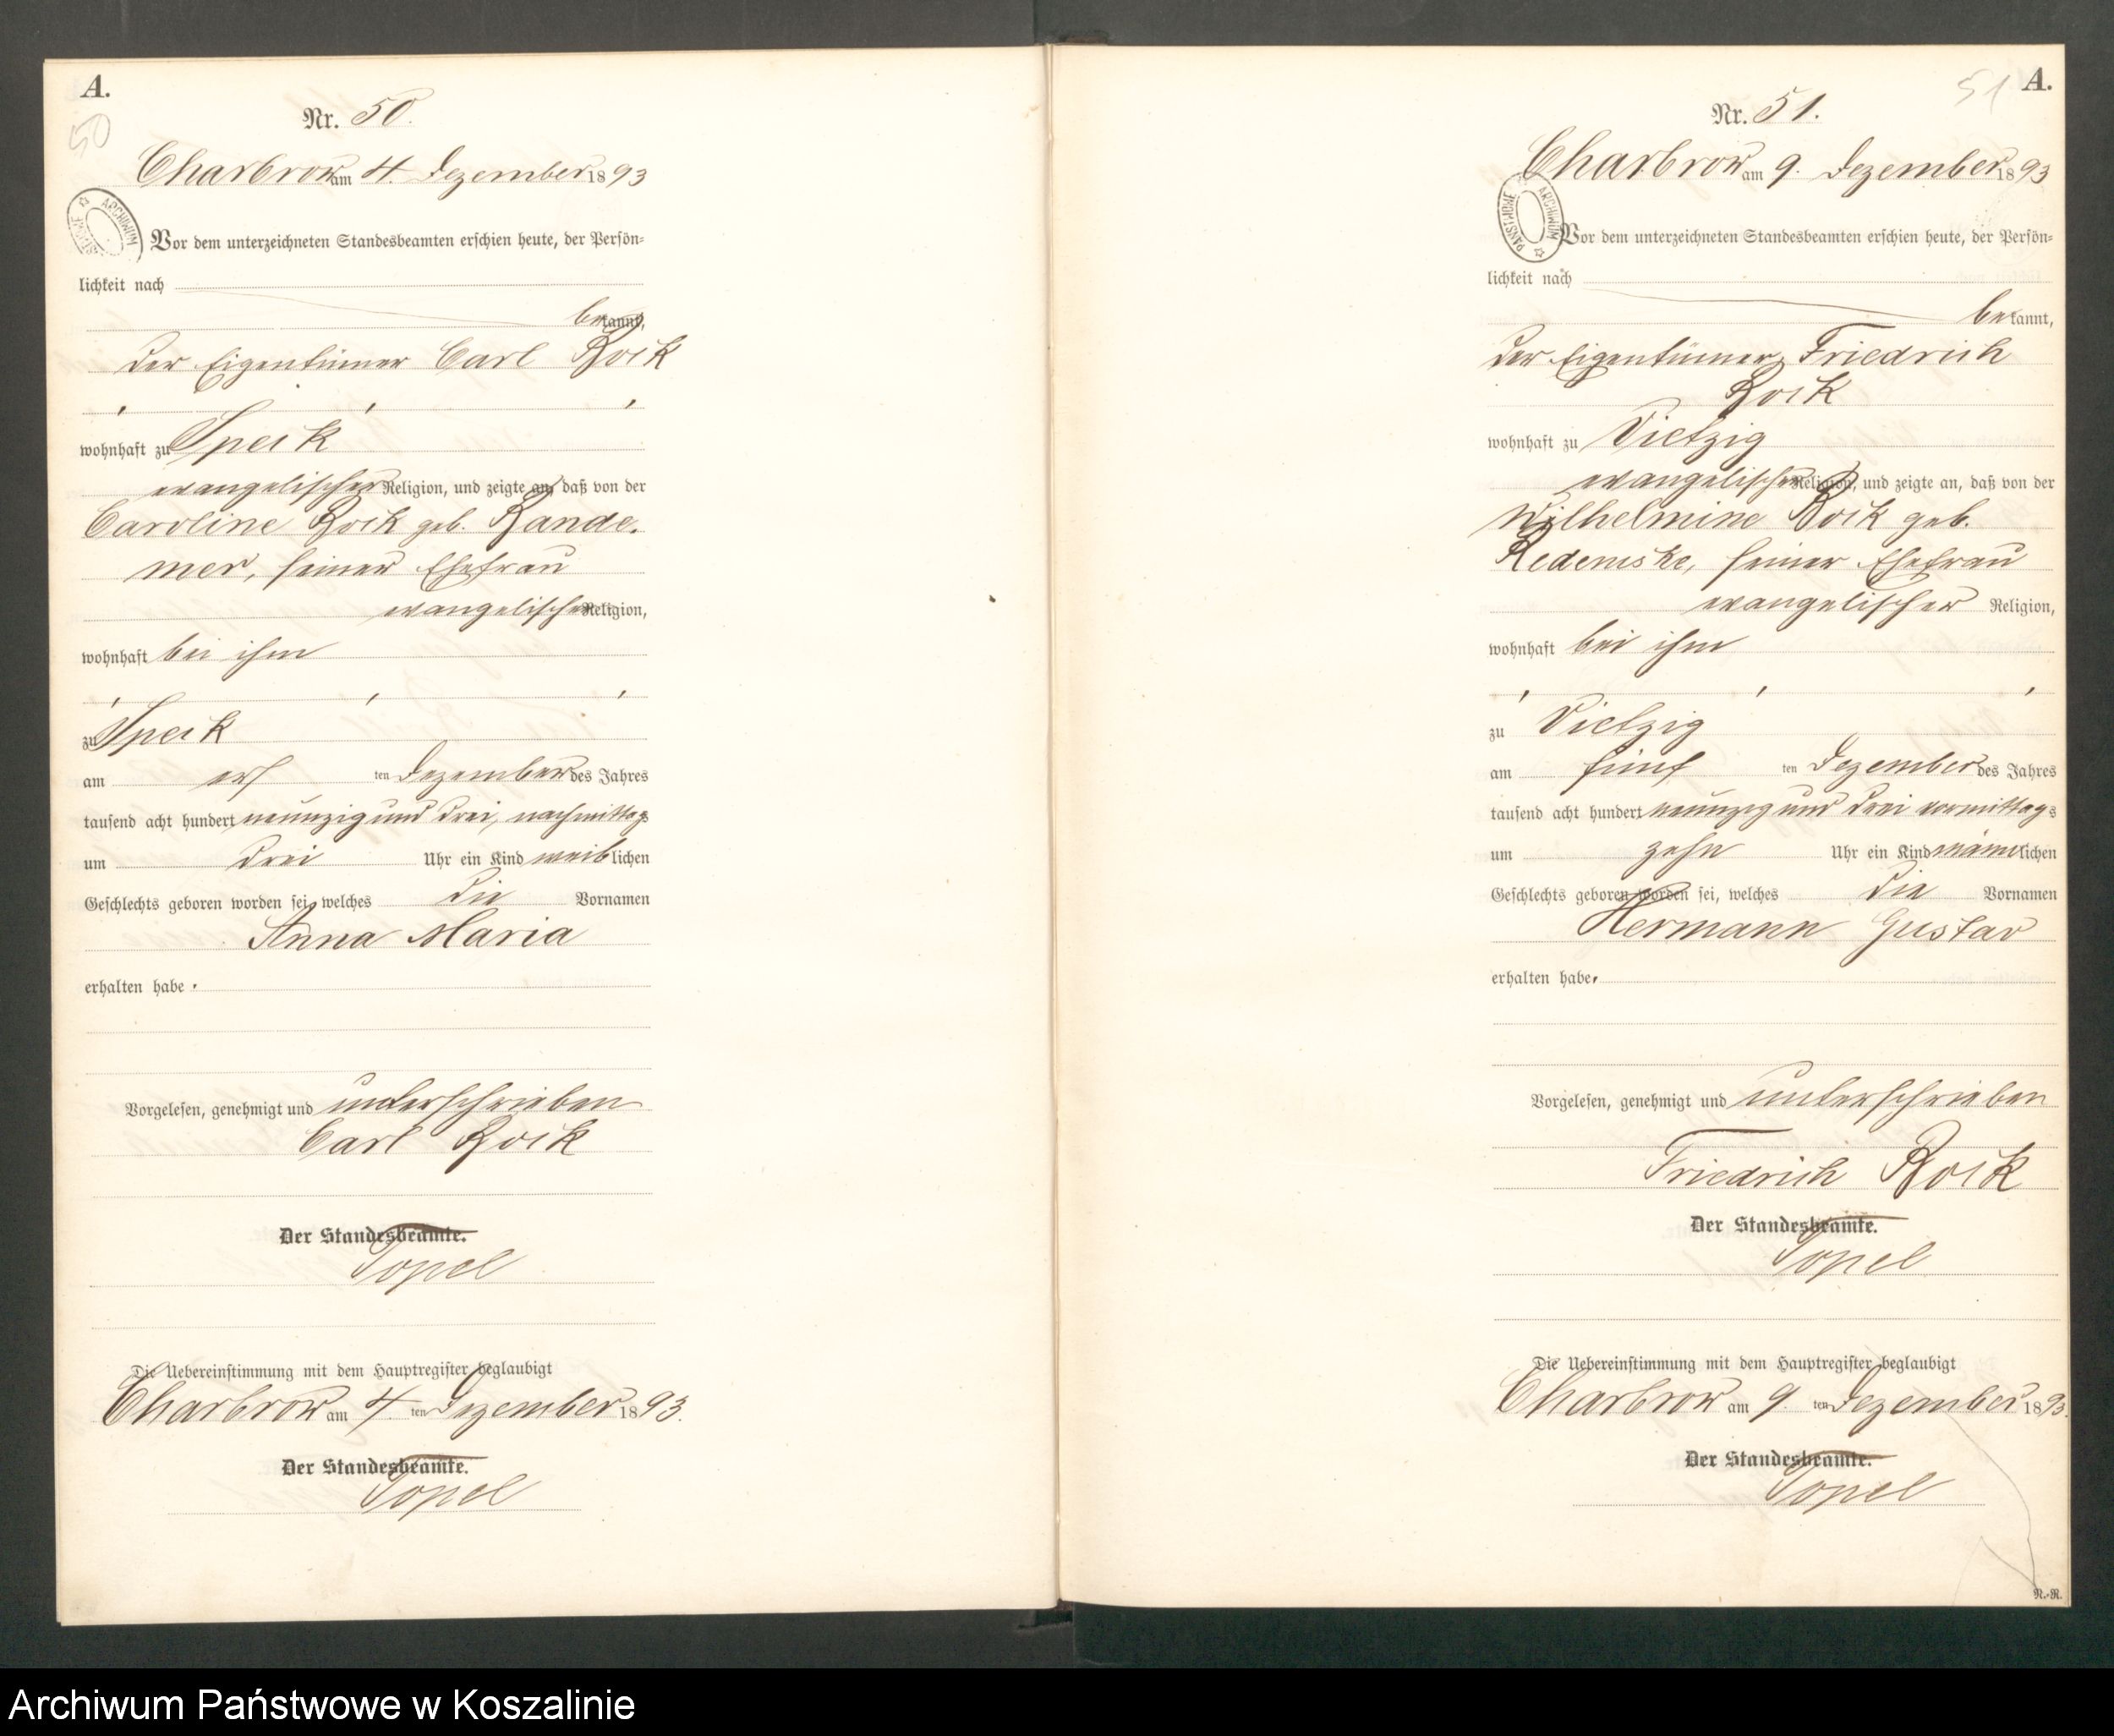 A.
50
Nr. 50.
Charbrow am 4. Dezember 1893
ARCHIWUM
Vor dem unterzeichneten Standesbeamten erschien heute, der Persön-
lichkeit nach
bekannt,
der Eigentümer Carl Rock
wohnhaft zu Speck
evangelischer Religion, und zeigte an, daß von der
Caroline Rock geb. Rande.
mer, seiner Ehefrau
evangelischer Religion,
wohnhaft bei ihm
zu Speck
am ersten Dezember des Jahres
tausend acht hundert neunzig und drei, nachmittags
um drei Uhr ein Kind weiblichen
Geschlechts geboren worden sei, welches die Vornamen
Anna Maria
erhalten habe.
Vorgelesen, genehmigt und unterschrieben
Carl Rock
Der Standesbeamte.
Topel
Die Uebereinstimmung mit dem Hauptregister beglaubigt
Charbrow am 4. ten Dezember 1893.
Der Standesbeamte.
Topel
51
A.
Nr. 51.
Charbrow am 9. Dezember 1893
ARCHIWUM PAŃSTWOWE
Vor dem unterzeichneten Standesbeamten erschien heute, der Persön-
lichkeit nach
bekannt,
der Eigentümer Friedrich
Rock
wohnhaft zu Vietzig
evangelischer Religion, und zeigte an, daß von der
Wilhelmine Rock geb.
seiner Ehefrau
evangelischer Religion,
wohnhaft bei ihm
zu Vietzig
am fünften Dezember des Jahres
tausend acht hundert neunzig und drei vormittags
um zehn Uhr ein Kind männlichen
Geschlechts geboren worden sei, welches die Vornamen
Hermann Gustav
erhalten habe.
Vorgelesen, genehmigt und unterschrieben
Friedrich Rock
Der Standesbeamte.
Topel
Die Uebereinstimmung mit dem Hauptregister beglaubigt
Charbrow am 9. ten Dezember 1893.
Der Standesbeamte.
Topel
R.-R.
Archiwum Państwowe w Koszalinie